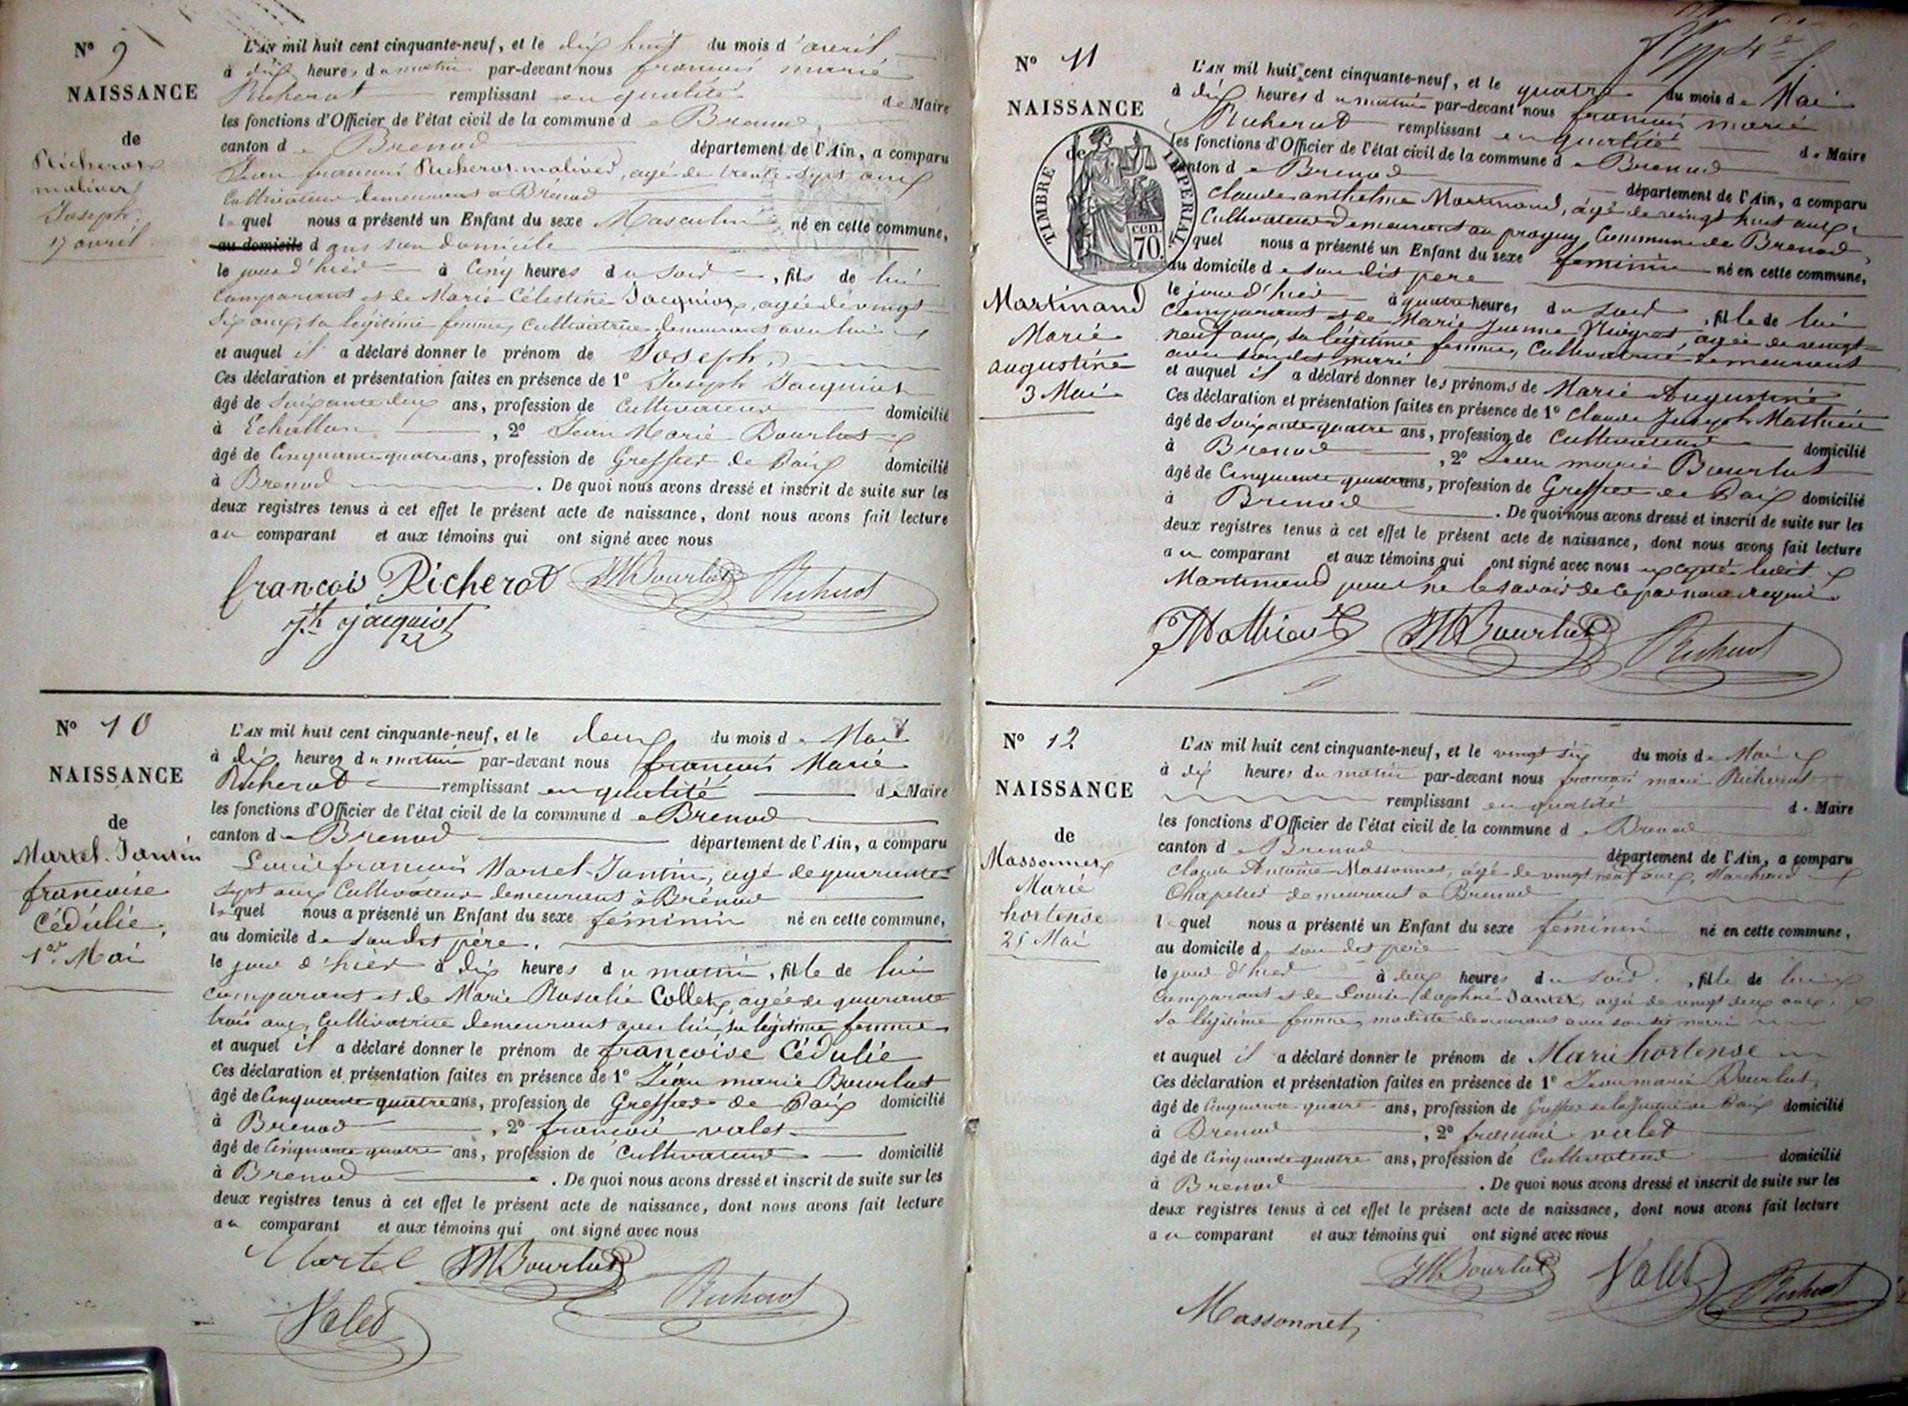 N° 9
NAISSANCE
de
Richerot
moliner
Joseph.
17 avril
L'AN mil huit cent cinquante-neuf, et le dix huit du mois d'avril
à dix heures du matin par-devant nous francois marie
Richerot remplissant en qualité de Maire
les fonctions d'Officier de l'état civil de la commune de Brenod,
canton de Brenod département de l'Ain, a comparu
Jean francois Richerot moliner, agé de trente sept ans
Cultivateur demeurant a Brénod
lequel nous a présenté un Enfant du sexe Masculin né en cette commune,
au domicile dans son domicile
le jour d'hier à Cinq heures du soir, fils de lui
Comparant et de Marie Célestine Jacquiot, agée de vingt
six ans, sa légitime femme, cultivatrice demeurant avec lui
et auquel il a déclaré donner le prénom de Joseph.
Ces déclaration et présentation faites en présence de 1° Joseph Jacquiot
âgé de Soixante deux ans, profession de Cultivateur domicilié
à Echallon, 2° Jean Marie Bourlut
âgé de Cinquante quatre ans, profession de Greffier de Paix domicilié
à Brenod. De quoi nous avons dressé et inscrit de suite sur les
deux registres tenus à cet effet le présent acte de naissance, dont nous avons fait lecture
au comparant et aux témoins qui ont signé avec nous
francois Richerot JMBourlut Richerot
jh jacquiot
N° 10
NAISSANCE
de
Martel-Jantin
francoise
Cédulie,
1er Mai
L'AN mil huit cent cinquante-neuf, et le deux du mois de Mai
à dix heures du matin par-devant nous francois Marie
Richerot remplissant en qualité de Maire
les fonctions d'Officier de l'état civil de la commune de Brenod
canton de Brenod département de l'Ain, a comparu
Louis francois Martel-Jantin, agé de quarante
sept ans Cultivateur demeurant à Brénod
lequel nous a présenté un Enfant du sexe féminin né en cette commune,
au domicile de son dit père.
le jour d'hier à dix heures du matin, fille de lui
comparant et de Marie Rosalie Collet, agée de quarante
trois ans, Cultivatrice demeurant avec lui, sa légitime femme
et auquel il a déclaré donner le prénom de francoise Cédulie
Ces déclaration et présentation faites en présence de 1° Jean marie Bourlut
âgé de Cinquante quatre ans, profession de Greffier de Paix domicilié
à Brenod, 2° francois valet
âgé de Cinquante quatre ans, profession de Cultivateur domicilié
à Brenod. De quoi nous avons dressé et inscrit de suite sur les
deux registres tenus à cet effet le présent acte de naissance, dont nous avons fait lecture
au comparant et aux témoins qui ont signé avec nous
Martel JMBourlut Richerot
Valet
N° 11
NAISSANCE
de
TIMBRE IMPERIAL
70 cen.
Martinand
Marie
augustine
3 Mai
L'AN mil huit cent cinquante-neuf, et le quatre du mois de Mai
à dix heures du matin par-devant nous francois marie
Richerot remplissant en qualité de Maire
les fonctions d'Officier de l'état civil de la commune de Brenod
canton de Brenod département de l'Ain, a comparu
Claude anthelme Martinand, agé de vingt huit ans,
Cultivateur demeurant au Commune de Brenod,
lequel nous a présenté un Enfant du sexe feminin né en cette commune,
au domicile de son dit pere
le jour d'hier à quatre heures du soir, fille de lui
Comparant et de Marie Jeanne agée de vingt
neuf ans, sa légitime femme, Cultivatrice demeurant
avec son dit mari
et auquel il a déclaré donner les prénoms de Marie Augustine
Ces déclaration et présentation faites en présence de 1° Claude Joseph Mathieu
âgé de Soixante quatre ans, profession de Cultivateur domicilié
à Brenod, 2° Jean marie Bourlut
âgé de Cinquante quatre ans, profession de Greffier de Paix domicilié
à Brenod. De quoi nous avons dressé et inscrit de suite sur les
deux registres tenus à cet effet le présent acte de naissance, dont nous avons fait lecture
au comparant et aux témoins qui ont signé avec nous excepté ledit
Martinand pour ne le savoir de ce par nous requis
Mathieu JMBourlut Richerot
N° 12
NAISSANCE
de
Massonnet
Marie
hortense
25 Mai
L'AN mil huit cent cinquante-neuf, et le vingt six du mois de Mai
à dix heures du matin par-devant nous francois marie Richerot
remplissant en qualité de Maire
les fonctions d'Officier de l'état civil de la commune de Brenod
canton de Brenod département de l'Ain, a comparu
Claude Antoine Massonnet, agé de vingt neuf ans, Marchand
Chapelier demeurant a Brenod
lequel nous a présenté un Enfant du sexe féminin né en cette commune,
au domicile de son dit père
le jour d'hier à deux heures du soir, fille de lui
Comparant et de Louise daphné Jantet, agée de vingt deux ans,
sa légitime femme, modiste demeurant avec son dit mari
et auquel il a déclaré donner le prénom de Marie hortense
Ces déclaration et présentation faites en présence de 1° Jean marie Bourlut,
âgé de Cinquante quatre ans, profession de Greffier de la Justice de Paix domicilié
à Brenod, 2° francois valet
âgé de Cinquante quatre ans, profession de Cultivateur domicilié
à Brenod. De quoi nous avons dressé et inscrit de suite sur les
deux registres tenus à cet effet le présent acte de naissance, dont nous avons fait lecture
au comparant et aux témoins qui ont signé avec nous
JMBourlut Valet Richerot
Massonnet